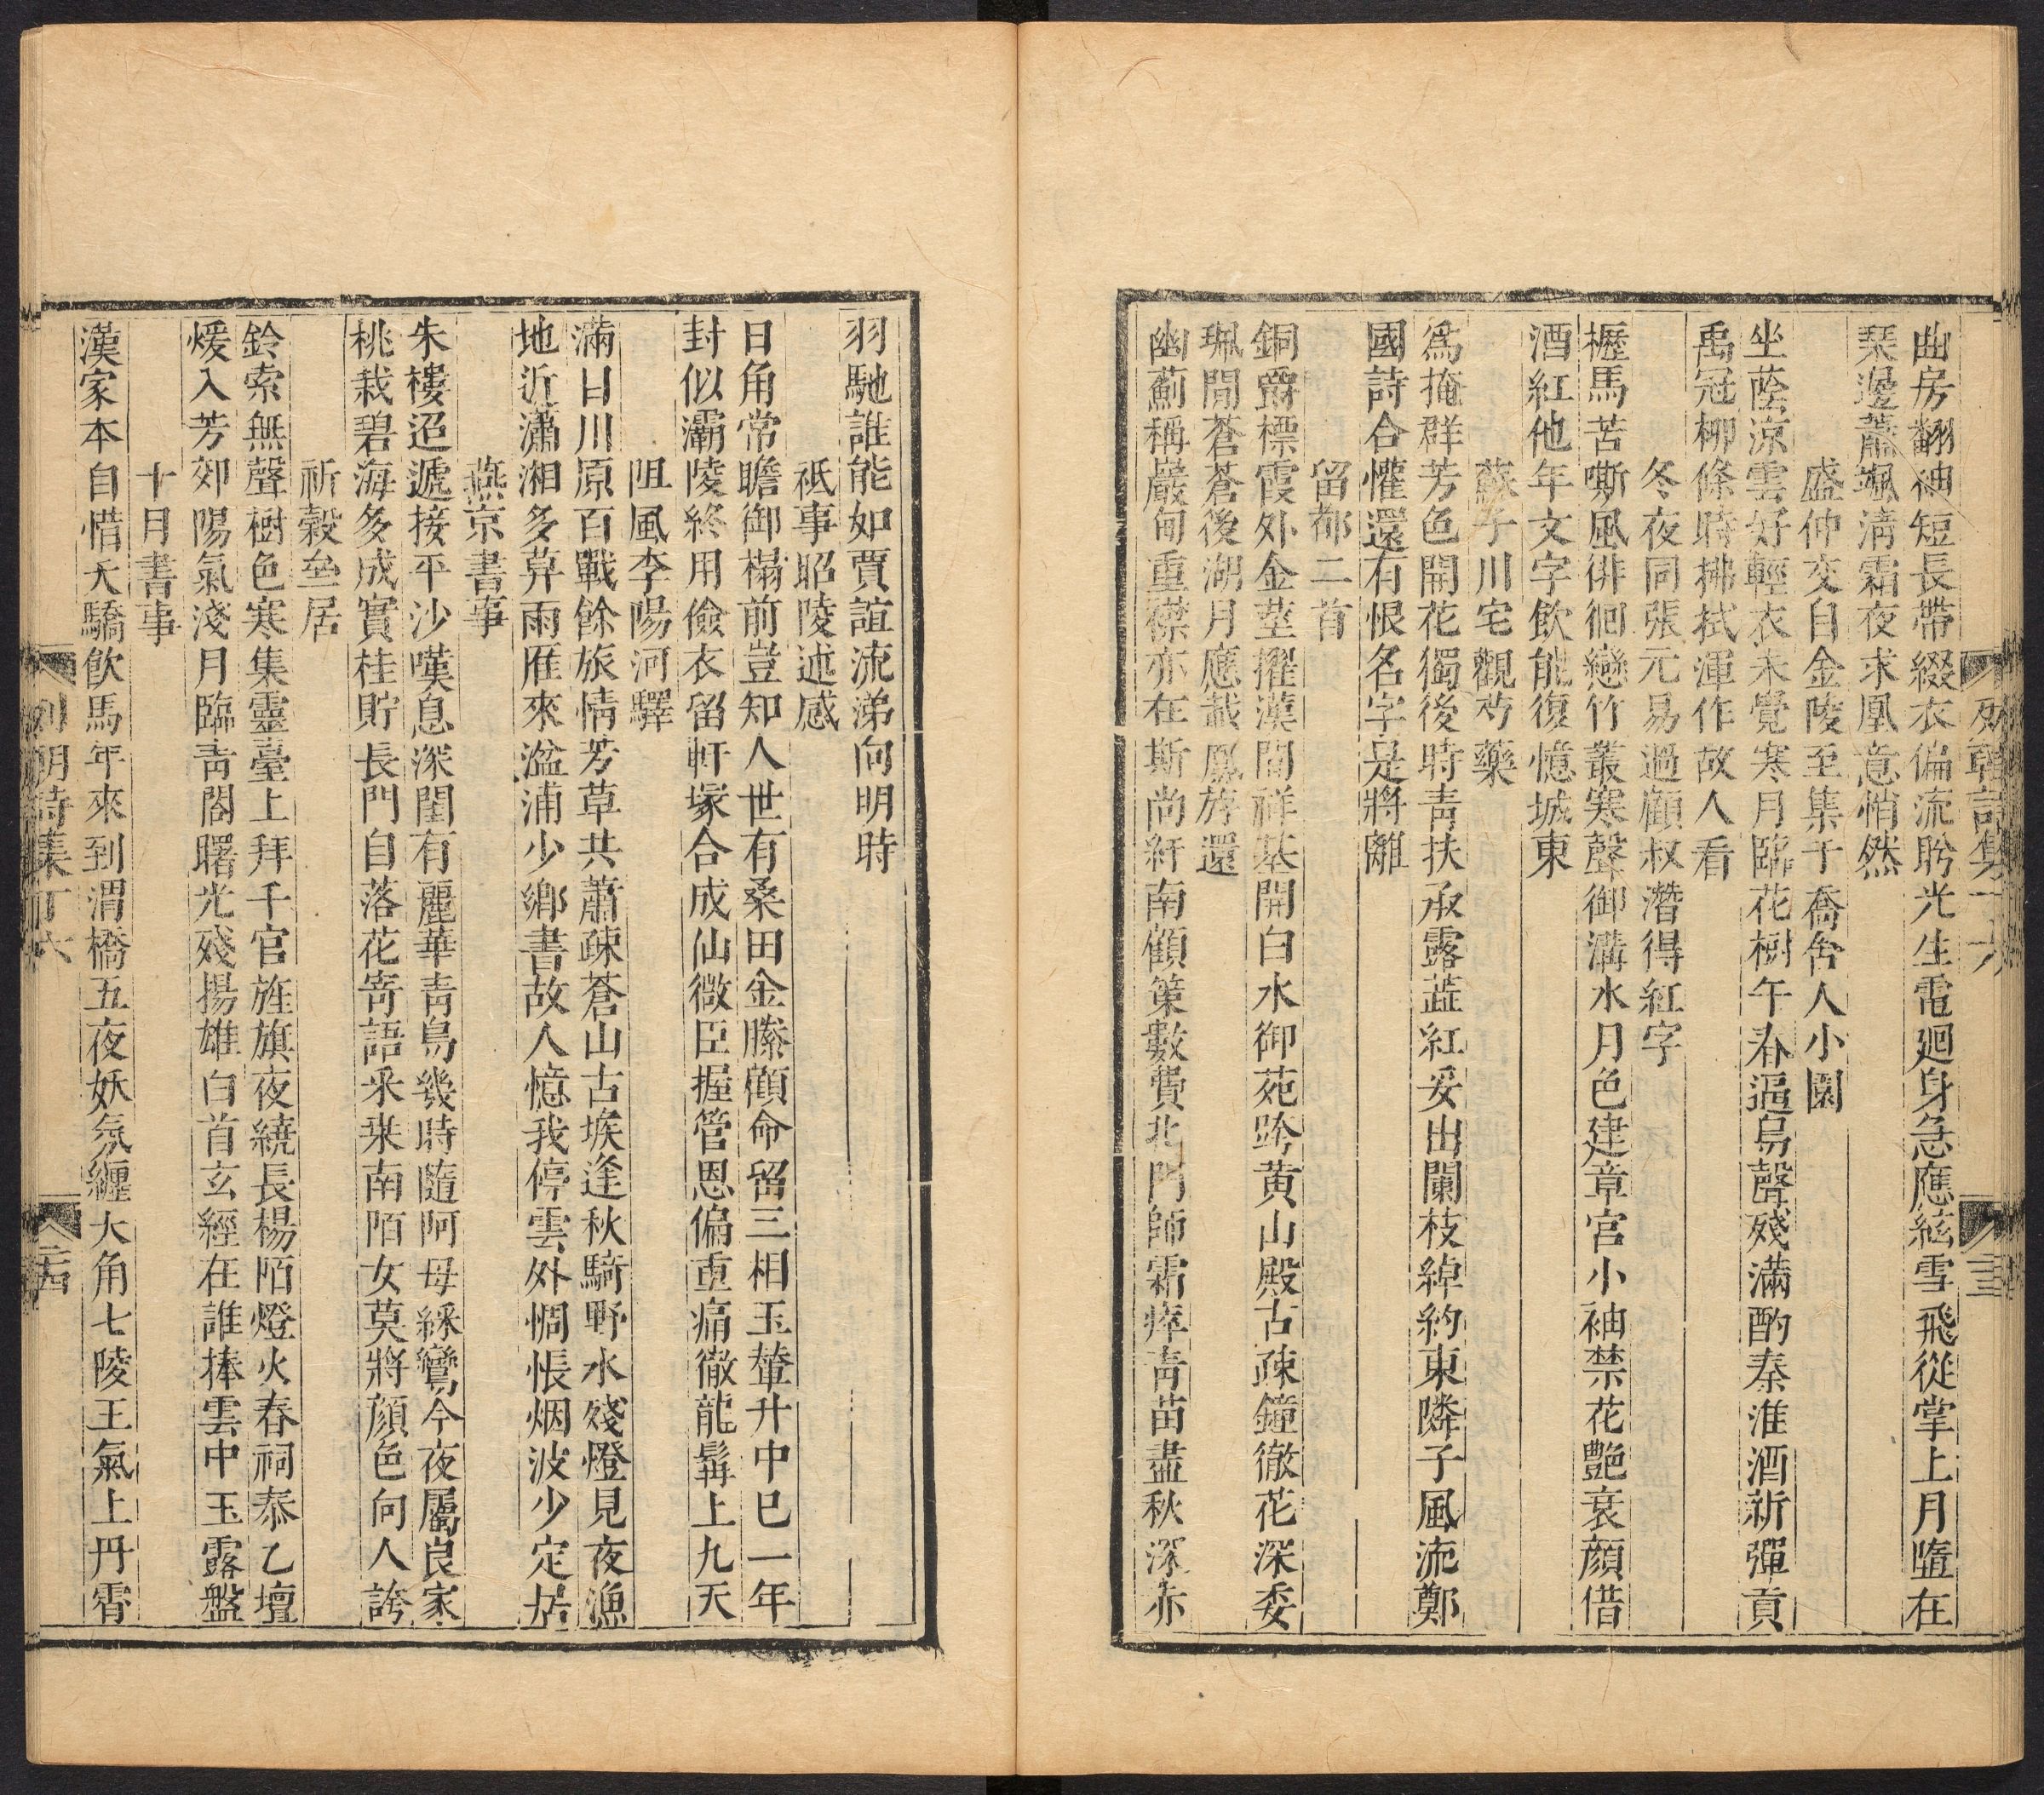 曲房翻袖短長帶綴衣偏流盻光生電廻身急應絃雪飛從掌上月墮在
琹邊蕭颯淸霜夜求凰意悄然
盛仲交自金陵至集于喬舍人小園
坐蔭凉雲好輕衣未覺寒月臨花樹午春逼鳥聲殘滿酌秦淮酒新彈貢
禹冠柳條時拂拭渾作故人看
冬夜同張元易過顧叔潛得紅字
櫪馬苦嘶風徘徊戀竹叢寒聲御溝水月色建章宮小袖禁花艷衰顏借
酒紅他年文字飲能復憶城東
蘇子川宅觀芍藥
爲掩群芳色開花獨後時靑扶承露蕋紅妥出闌枝綽約東隣子風流鄭
國詩合懽還有恨名字是將離
留都二首
銅爵標霞外金莖擢漢間祥基開白水御苑跨黃山殿古疎鐘徹花深委
珮間蒼蒼後湖月應識鳳斿還
幽薊稱嚴甸重襟亦在斯尚紆南顧策數費北門師霜瘁靑苗盡秋深赤
列朝詩集丁六
二十三
羽馳誰能如賈誼流涕向明時
祇事昭陵述感
日角常瞻御榻前豈知人世有桑田金縢顧命留三相玉輦升中巳一年
封似灞陵終用儉衣留軒塚合成仙微臣握管恩偏重痛徹龍髯上九天
阻風李陽河驛
滿目川原百戰餘旅情芳草共蕭疎蒼山古堠逢秋騎野水殘燈見夜漁
地近瀟湘多莫雨雁來湓浦少鄉書故人憶我停雲外惆悵烟波少定居
燕京書事
朱樓迢遞接平沙嘆息深閨有麗華靑鳥幾時隨阿母綵鸞今夜屬良家
桃栽碧海多成實桂貯長門自落花寄語釆桒南陌女莫將顏色向人誇
祈穀壘居
鈴索無聲樹色寒集靈臺上拜千官旌旗夜繞長楊陌燈火春祠泰乙壇
煖入芳郊陽氣淺月臨靑閣曙光殘揚雄白首玄經在誰捧雲中玉露盤
十月書事
漢家本自惜天驕飮馬年來到渭橋五夜妖氛纏大角七陵王氣上丹霄
列朝詩集丁六
二十四